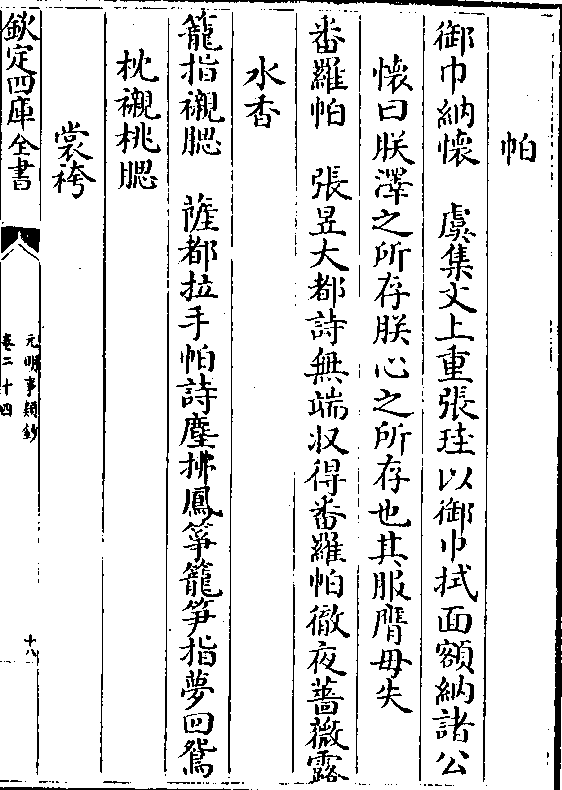 帕
御巾納懷　虞集文上重張珪以御巾拭面額納諸公
懷曰朕澤之所存朕心之所存也其服膺毋失
番羅帕　張昱大都詩無端収得番羅帕徹夜薔薇露
水香
籠指襯腮　薩都拉手帕詩塵拂鳳箏籠笋指夢回鴛
枕襯桃腮
裳袴
欽定四庫全書
元明事類鈔
卷二十四
十八